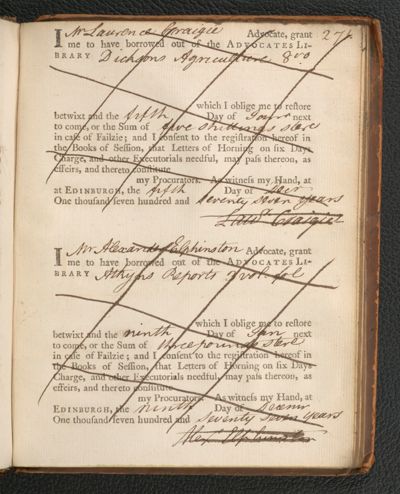 I Mr Laurence Craigie Advocate, grant 27
me to have borrowed out of the ADVOCATES LI-
BRARY Dicksons Agriculture 8vo
which I oblige me to restore
betwixt and the fifth Day of Janr next
to come, or the Sum of five shillings sterl
in case of Failzie; and I consent to the registration hereof in
the Books of Session, that Letters of Horning on six Days
Charge, and other Executorials needful, may pass thereon, as
effeirs, and thereto constitute
my Procurators. As witness my Hand, at
at EDINBURGH, the fifth Day of Decr
One thousand seven hundred and seventy seven years
Laur Craigie
I Mr Alexander Elphinston Advocate, grant
me to have borrowed out of the ADVOCATES LI-
BRARY Atkyns Reports vol fol
which I oblige me to restore
betwixt and the ninth Day of Jan next
to come, or the Sum of three pounds sterl
in case of Failzie; and I consent to the registration hereof in
the Books of Session, that Letters of Horning on six Days
Charge, and other Executorials needful, may pass thereon, as
effeirs, and thereto constitute
my Procurators. As witness my Hand, at
EDINBURGH, the ninth Day of Decemr
One thousand seven hundred and seventy seven years
Alexr Elphinston